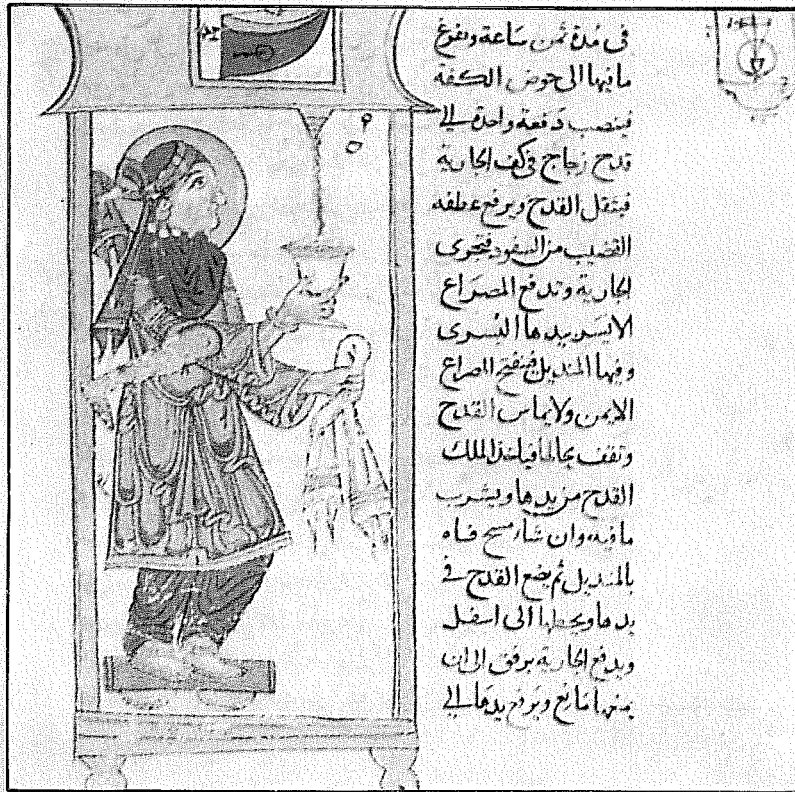 فى مُدة ثمن ساعة وتفرغ
ما فيها الى حوض الكفة
فينصب دفعة واحدة الى
قدح زجاج فى كف الجارية
فيثقل القدح ويرفع عطفه
القضيب من السفود فتجرى
الجارية وتدفع المصراع
الايسر بيدها اليُسرى
وفيها المنديل فينفتح المصراع
الايمن ولا يماس القدح
وتقف بحالها فياخذ الملك
القدح من يدها ويشرب
ما فيه وان شاء مسح فاه
بالمنديل ثم يضع القدح فى
يدها ويحطها الى اسفل
ويدفع الجارية برفق الى ان
وترفع يدها الى